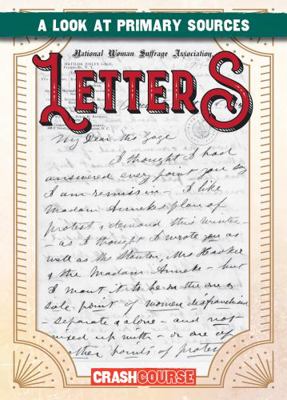 A LOOK AT PRIMARY SOURCES
National Woman Suffrage Association
LETTERS
My Dear Mrs Gage
I thought I had
answered every point you say
I am remiss in — I like
Madam Annekes plan of
protest & demand this winter —
— as I thought I wrote you as
well as Mrs Stanton, Mrs Hooker
& the Madam Anneke — but
I want it to be on the one &
sole point of women disfranchised
separate & alone — and not
mixed up with — or one of
other points of protest
CRASHCOURSE